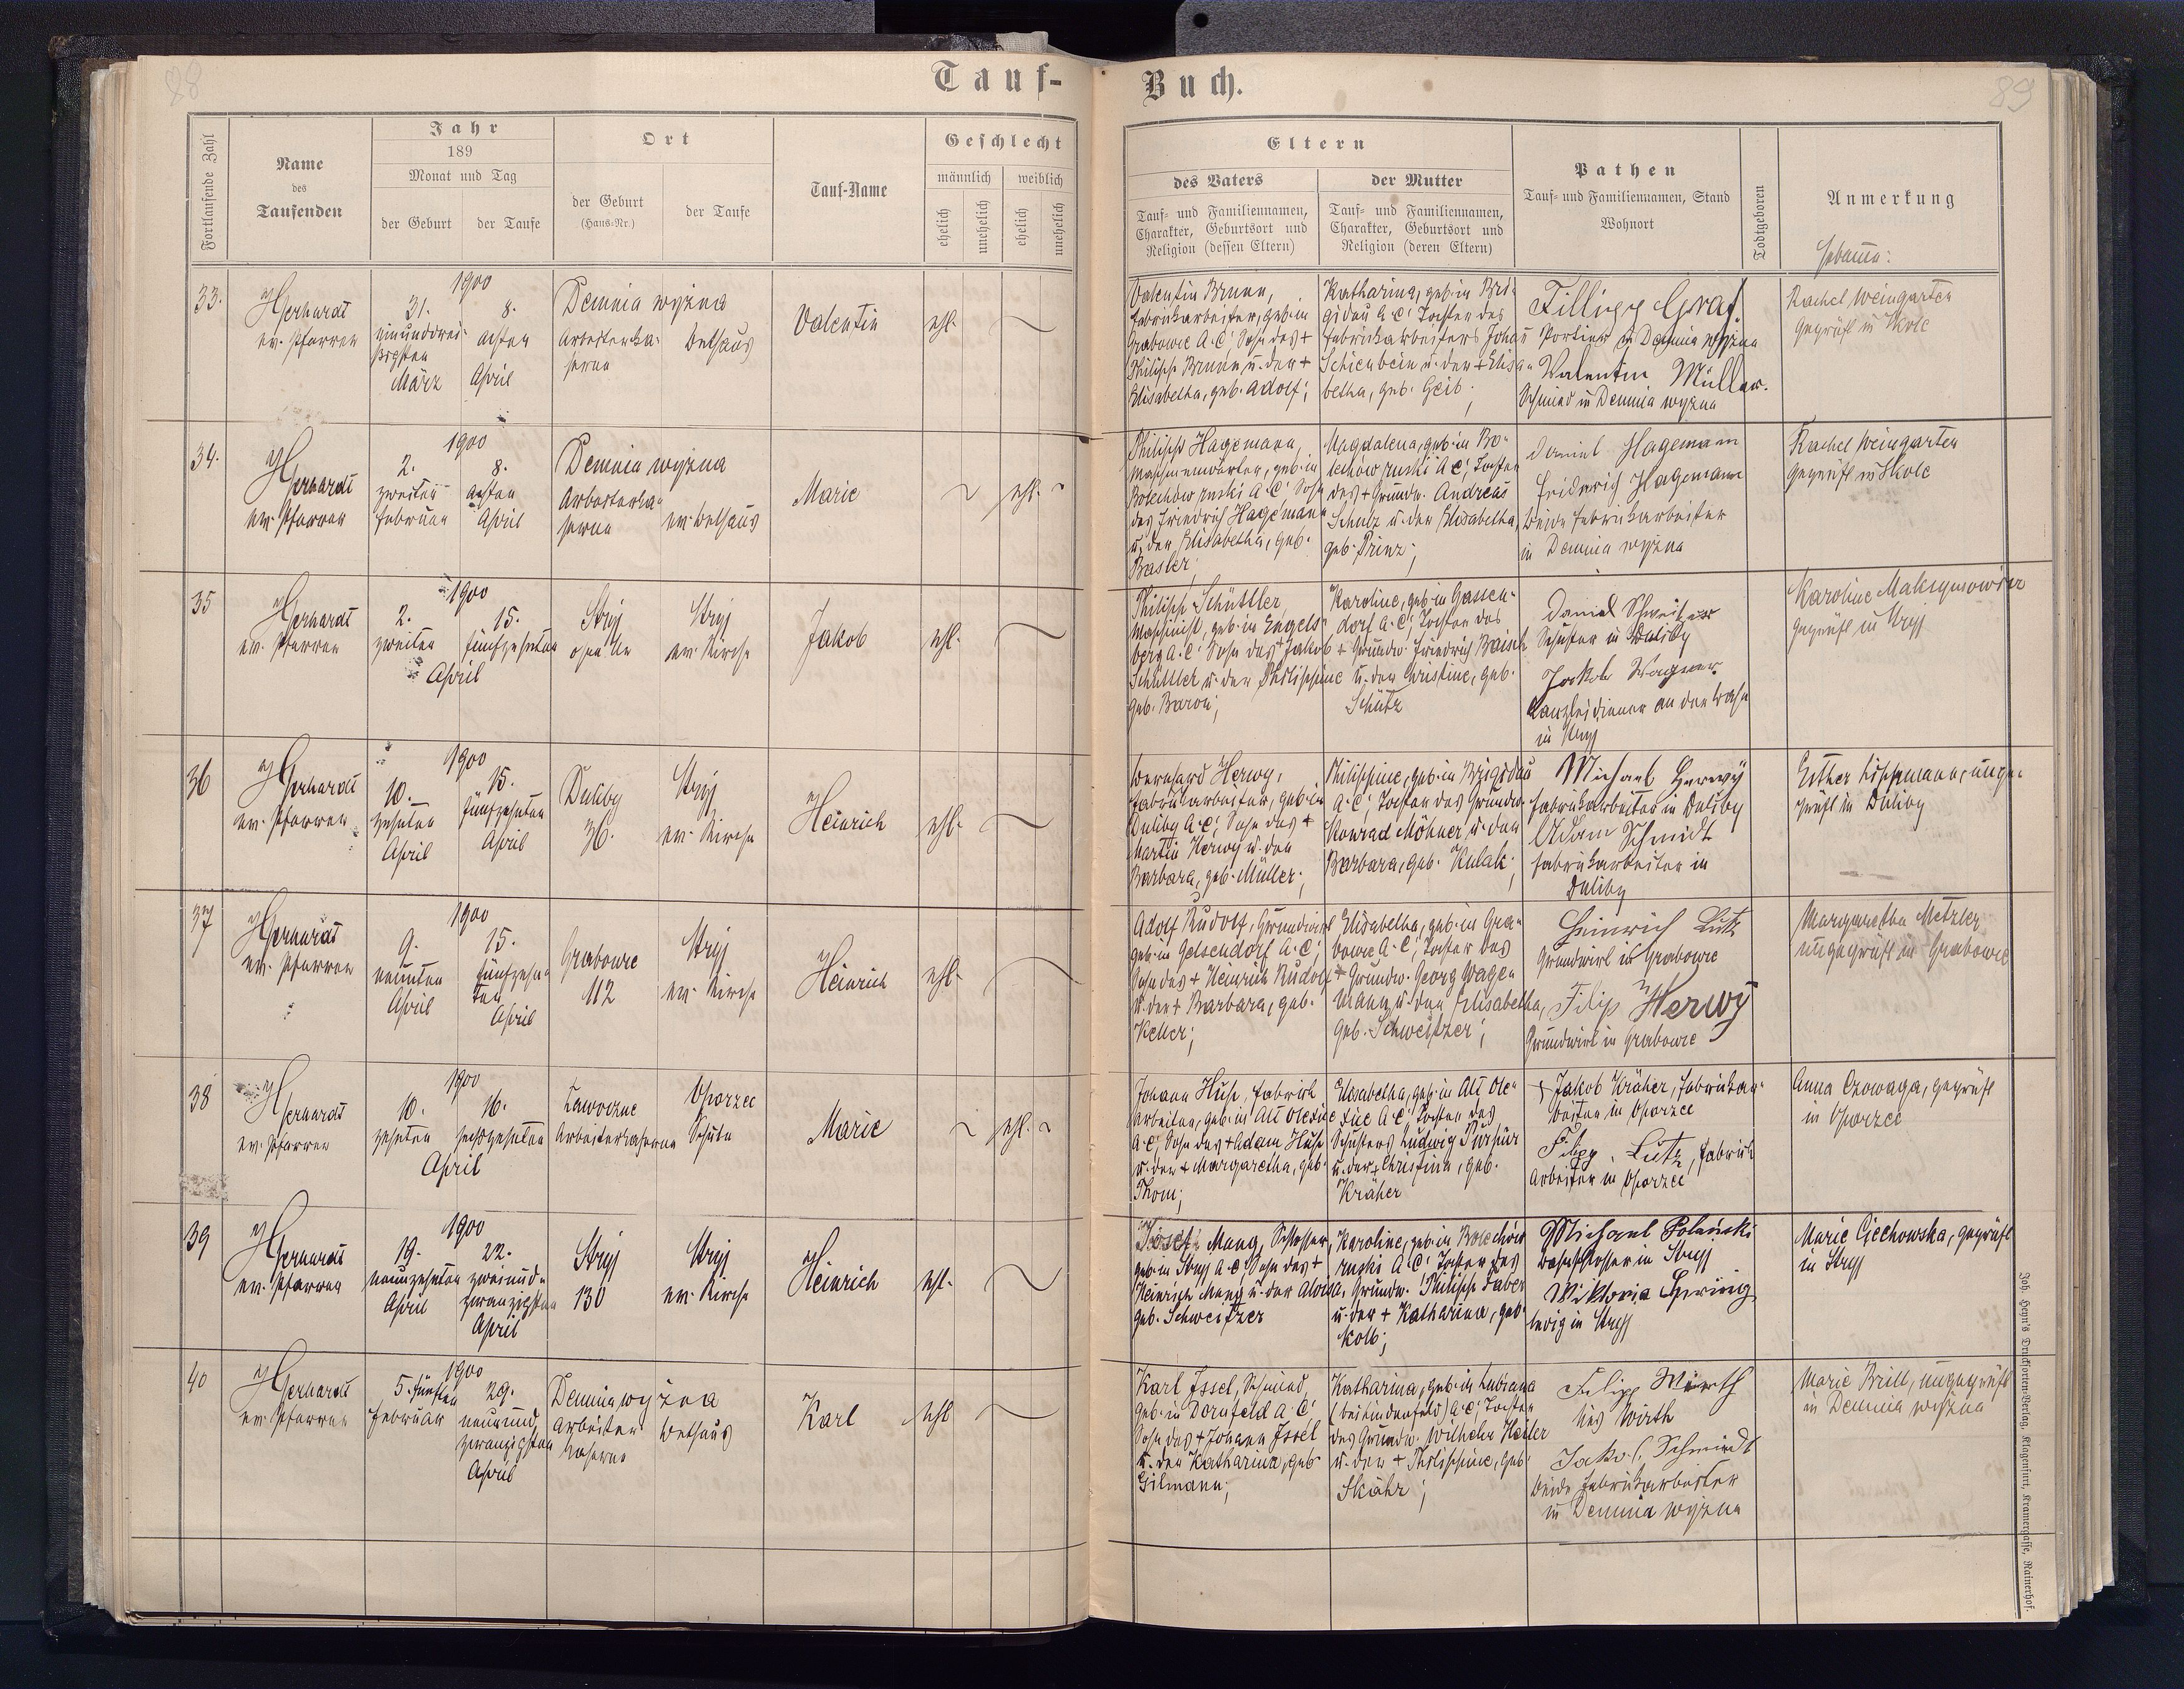 88
Tauf-
Fortlaufende Zahl
Name
des
Taufenden
Jahr
189
Monat und Tag
der Geburt
der Taufe
Ort
der Geburt
(Haus-Nr.)
der Taufe
Tauf-Name
Geschlecht
männlich
weiblich
ehelich
unehelich
ehelich
unehelich
33.
Gerhardt
ev. Pfarrer
1900
31.
einunddrei-
ßigsten
März
8.
achten
April
Demnia wyżna
Arbeiterka-
serne
Bethaus
Valentin
ehl.
34.
Gerhardt
ev. Pfarrer
1900
2.
zweiten
Februar
8.
achten
April
Demnia wyżna
Arbeiterka-
serne
ev. Bethaus
Marie
ehl.
35
Gerhardt
ev. Pfarrer
1900
2.
zweiten
15.
fünfzehnten
April
Stryj
ohne Nr
Stryj
ev. Kirche
Jakob
ehl.
36
Gerhardt
ev. Pfarrer
1900
10.
zehnten
April
15.
fünfzehnten
April
Duliby
36.
Stryj
ev. Kirche
Heinrich
ehl.
37
Gerhardt
ev. Pfarrer
1900
9.
neunten
April
15.
fünfzehn-
ten
April
Grabowce
112
Stryj
ev. Kirche
Heinrich
ehl.
38
Gerhardt
ev. Pfarrer
1900
10.
zehnten
16.
sechzehnten
April
Ławoczne
Arbeiterkaserne
Oporzec
Schule
Marie
ehl.
39
Gerhardt
ev. Pfarrer
1900
19.
neunzehnten
April
22.
zweiund-
zwanzigsten
April
Stryj
130
Stryj
ev. Kirche
Heinrich
ehl.
40
Gerhardt
ev. Pfarrer
1900
5. fünften
Februar
29.
neunund-
zwanzigsten
April
Demnia wyżna
Arbeiter
kaserne
Bethaus
Karl
ehl
Buch.
89
Eltern
des Vaters
Tauf- und Familiennamen,
Charakter, Geburtsort und
Religion (dessen Eltern)
der Mutter
Tauf- und Familiennamen,
Charakter, Geburtsort und
Religion (deren Eltern)
Pathen
Tauf- und Familiennamen, Stand
Wohnort
Todtgeboren
Anmerkung
Hebamme:
Valentin Brunn,
Fabrikarbeiter, geb. in
Grabowce A.C.; Sohn des +
Philipp Brunn u. der +
Elisabetha, geb. Adolf;
Katharina, geb. in Bri-
gidau A.C.; Tochter des
Fabrikarbeiters Johann
Schienbein u. der + Elisa-
betha, geb. Geib;
Fillipp Graf.
Portier in Demnia wyżna
Valentin Müller.
Schmied in Demnia wyżna
Rachel Weingarten
geprüft in Skole
Philipp Hagemann,
Maschinenwärter, geb. in
Bolechow ruski A.C.; Sohn
des Friedrich Hagemann
u. der Elisabetha, geb.
Basler;
Magdalena, geb. in Bo-
lechow ruski A.C.; Tochter
des + Grundw. Andreas
Schulz u. der Elisabetha,
geb. Prinz;
Daniel Hagemann
Friderich Hagemann
beide Fabrikarbeiter
in Demnia wyżna
Rachel Weingarten
geprüft in Skole
Philipp Schüttler
Maschinist, geb. in Engels-
berg A.C.; Sohn des + Jakob
Schüttler u. der Philippine
geb. Baron;
Karoline, geb. in Gassen-
dorf A.C.; Tochter des
+ Grundw. Friedrich Baisch
u. der Christine, geb.
Schütz
Daniel Schweitzer
Schuster in Duliby
Jakob Wagner
Kanzleidiener an der Bahn
in Stryj
Karoline Maksymowicz
geprüft in Stryj
Bernhard Herwy,
Fabrikarbeiter, geb. in
Duliby A.C.; Sohn des +
Martin Herwy u. der
Barbara, geb. Müller;
Philippine, geb. in Brigidau
A.C.; Tochter des Grundw.
Konrad Möhner u. der
Barbara, geb. Kulak;
Michael Herwÿ
Fabrikarbeiter in Duliby
Adam Schmidt
Fabrikarbeiter in
Duliby
Esther Koppmann, unge-
prüft in Duliby
Adolf Rudolf, Grundwirt
geb. in Gelsendorf A.C.;
Sohn des + Heinrich Rudolf
u. der + Barbara, geb.
Keller;
Elisabetha, geb. in Gra-
bowce A.C.; Tochter des
+ Grundw. Georg Wage-
mann u. der Elisabetha,
geb. Schweitzer;
Heinrich Lutz
Grundwirt in Grabowce
Filip Herwÿ
Grundwirt in Grabowce
Margaretha Metzler
ungeprüft in Grabowce
Johann Husz, Fabriks
Arbeiter, geb. in Alt Olexine
A.C.; Sohn des + Adam Husz
u. der + Margaretha, geb.
Thom;
Elisabetha, geb. in Alt Ole-
xine A.C.; Tochter des
Schusters Ludwig Purpur
u. der + Christina, geb.
Kräher
Jakob Kräher, Fabrikar-
beiter in Oporzec
Filipp Lutz, Fabrik
Arbeiter in Oporzec
Anna Czowaga, geprüft
in Oporzec
Josef Mang, Schlosser,
geb. in Stryj A.C.; Sohn des +
Heinrich Mang u. der Aloisia,
geb. Schweitzer
Karoline, geb. in Bolechów
ruski A.C.; Tochter des
Grundw. Philipp Faber
u. der + Katharina, geb.
Kolb;
Michael Polański
Bahnschlosser in Stryj
Wiktoria Spring
ledig in Stryj
Marie Ciechowska, geprüft
in Stryj
Karl Issel, Schmied,
geb. in Dornfeld A.C.;
Sohn des + Johann Issel
u. der Katharina, geb.
Gilmann;
Katharina, geb. in Lubiana
(bei Lindenfeld) A.C.; Tochter
des Grundw. Wilhelm Heiler
u. der + Philippine, geb.
Skähr;
Filipp Wirth
Jakob Schmidt
beide Fabrikarbeiter
in Demnia wyżna
Marie Brill, ungeprüft
in Demnia wyżna
Joh. Heyn's Drucksorten-Verlag, Klagenfurt, Kramergasse, Rainerhof.